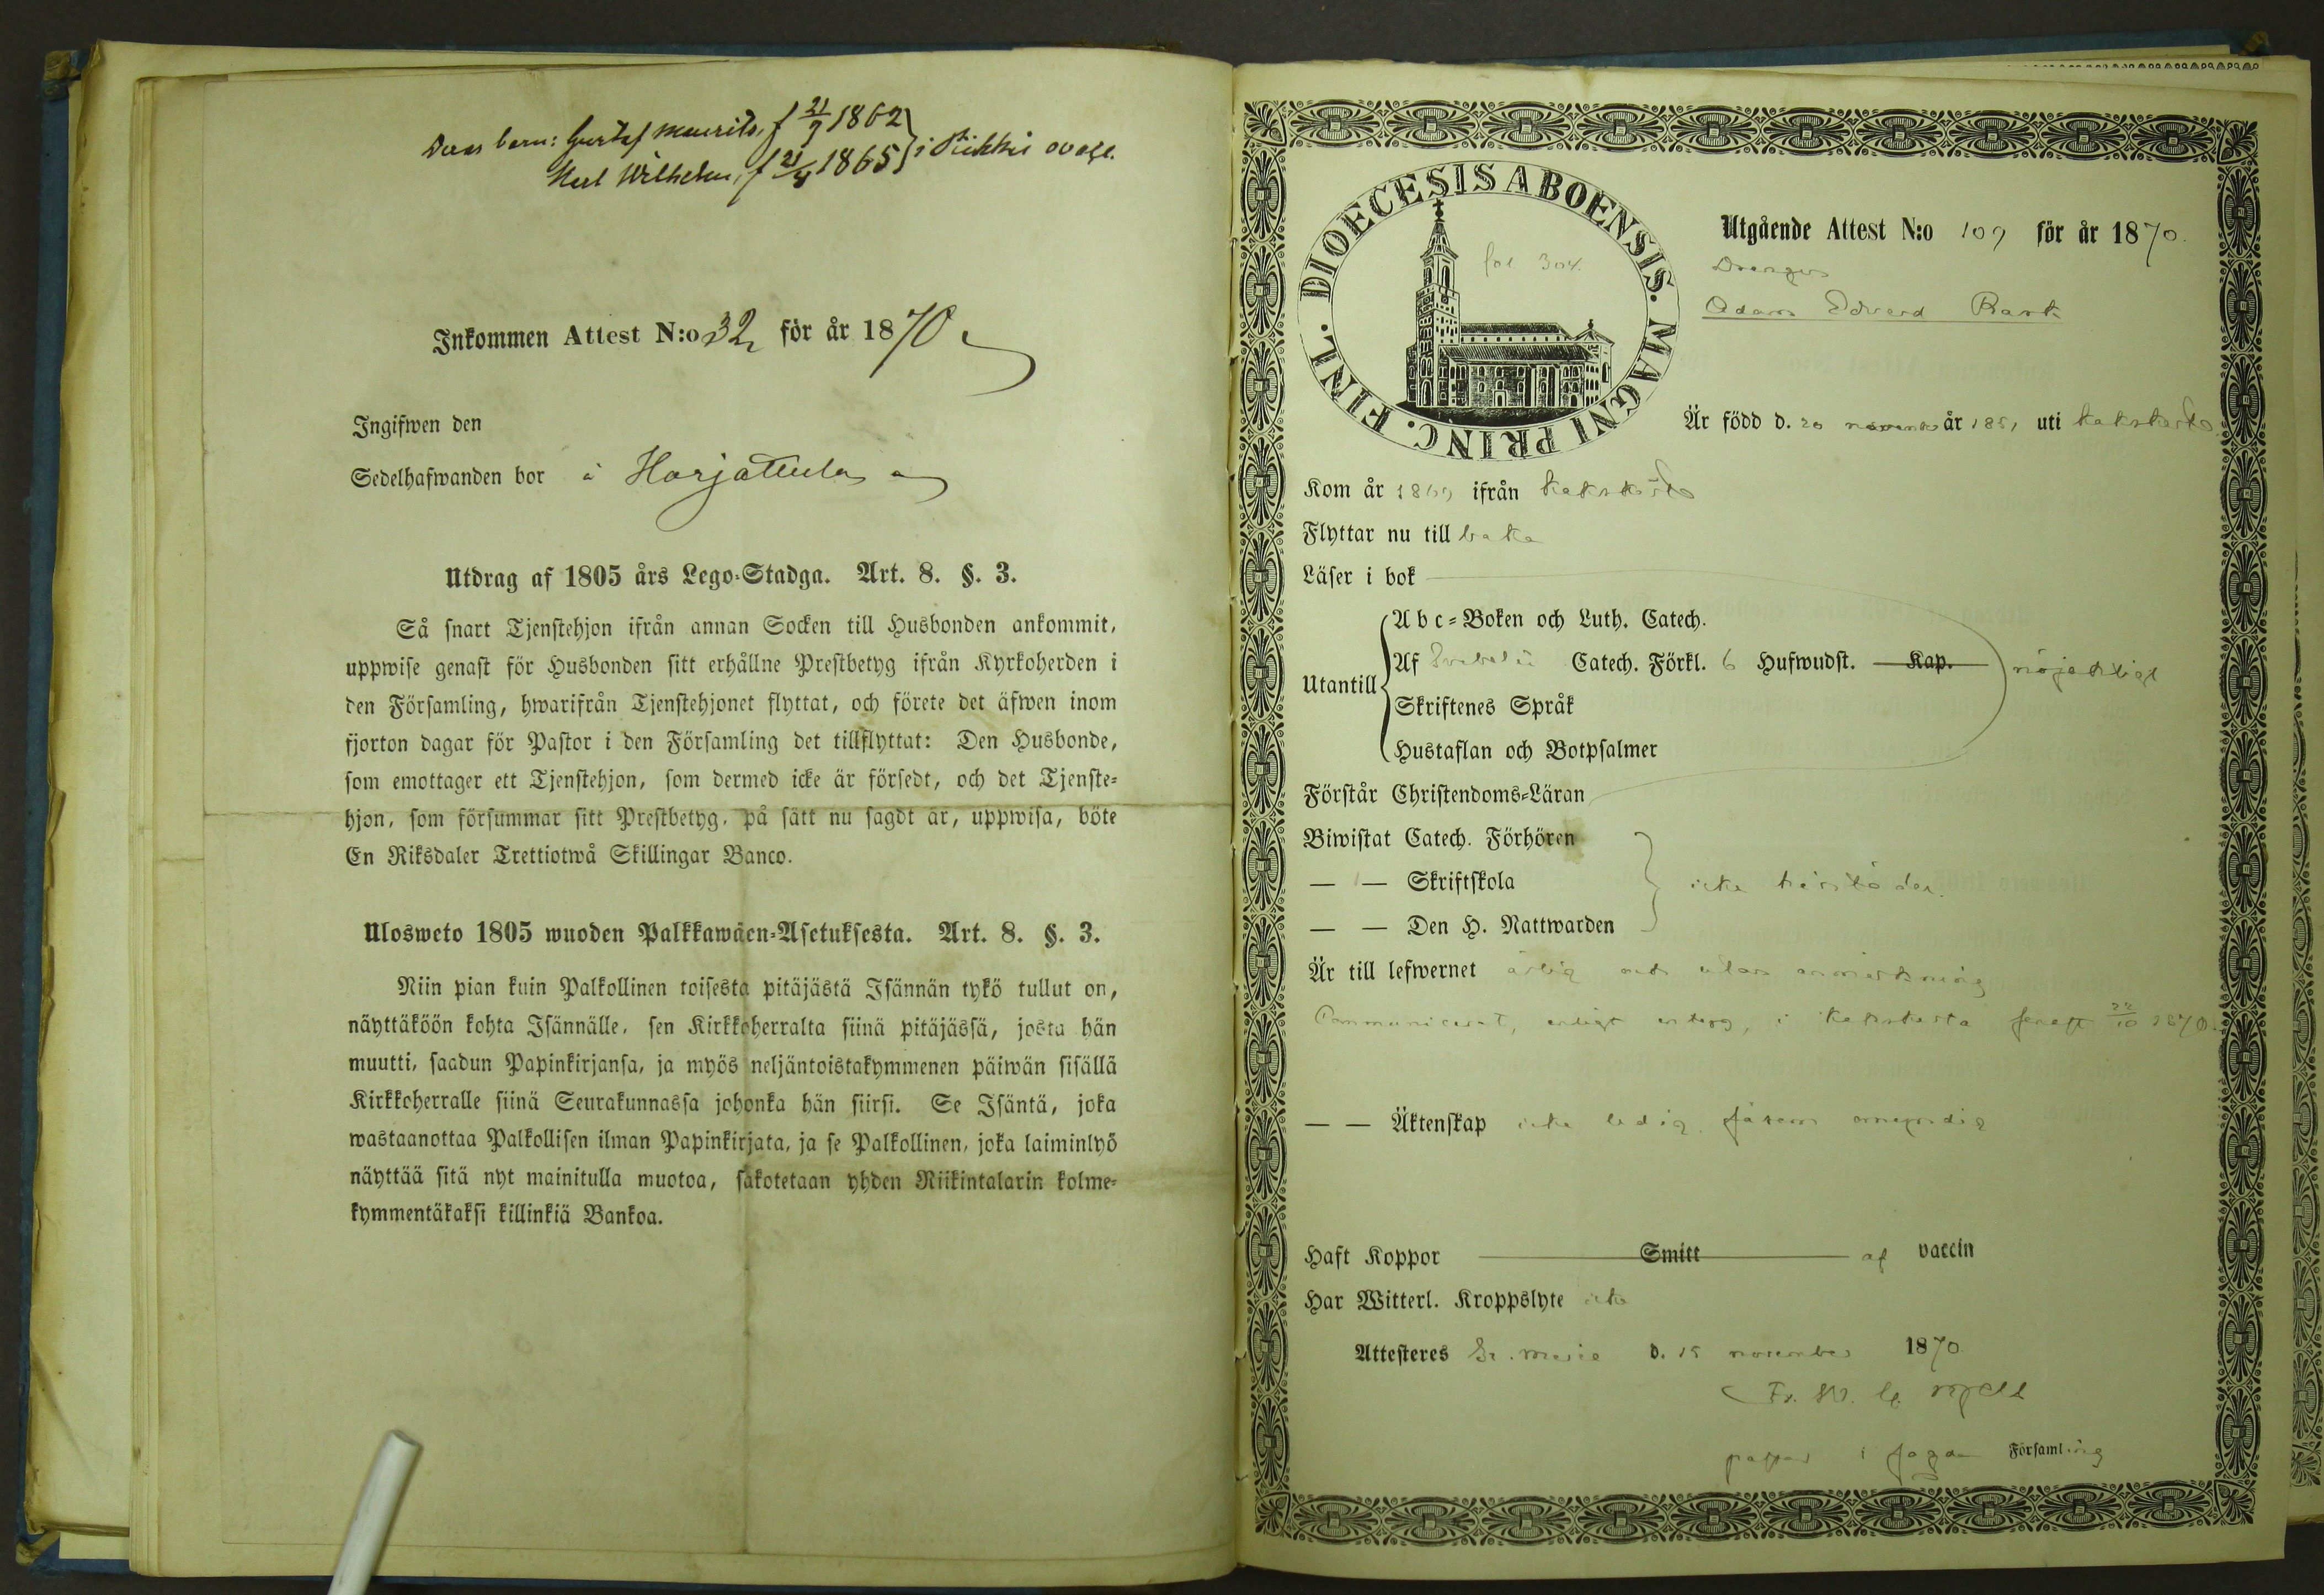 Deras barn: Gustaf Maurits, f 21/7 1862
Karl Wilhelm, f 21/4 1865 } i Pikkis
Inkommen Attest N:o 32 för år 1870
Ingifwen den
Sedelhafwanden bor å Harjattula
Utdrag af 1805 års Lego-Stadga. Art. 8. §. 3.
Så snart Tjenstehjon ifrån annan Socken till Husbonden ankommit,
uppwise genast för Husbonden sitt erhållne Prestbetyg ifrån Kyrkoherden i
den Församling, hwarifrån Tjenstehjonet flyttat, och förete det äfwen inom
fjorton dagar för Pastor i den Församling det tillflyttat: Den Husbonde,
som emottager ett Tjenstehjon, som dermed icke är försedt, och det Tjenste-
hjon, som försummar sitt Prestbetyg, på sätt nu sagdt är, uppwisa, böte
En Riksdaler Trettiotwå Skillingar Banco.
Ulosweto 1805 wuoden Palkkawäen-Asetuksesta. Art. 8. §. 3.
Niin pian kuin Palkollinen toisesta pitäjästä Isännän tykö tullut on,
näyttäköön kohta Isännälle, sen Kirkkoherralta siinä pitäjässä, josta hän
muutti, saadun Papinkirjansa, ja myös neljäntoistakymmenen päiwän sisällä
Kirkkoherralle siinä Seurakunnassa johonka hän siirsi. Se Isäntä, joka
wastaanottaa Palkollisen ilman Papinkirjata, ja se Palkollinen, joka laiminlyö
näyttää sitä nyt mainitulla muotoa, sakotetaan yhden Riikintalarin kolme-
kymmentäkaksi killinkiä Bankoa.
DIOECESIS ABOENSIS. MAGNI PRINC. FINL.
fol 304.
Utgående Attest N:o 109 för år 1870.
Drengen
Adam Edvard Rask
Är född d. 20 november år 1851 uti Kakskerta
Kom år 1869 ifrån Kakskerta
Flyttar nu till baka
Läser i bok
Utantill
Abc-Boken och Luth. Catech.
Af Svebelii Catech. Förkl. 6 Hufwudst. Kap. nöjaktligt
Skriftenes Språk
Hustaflan och Botpsalmer
Förstår Christendoms-Läran
Biwistat Catech. Förhören
— — Skriftskola icke härstädes.
— — Den H. Nattwarden
Är till lefwernet ärlig och utan anmärkning
Communicerat, enligt intyg, i Kakskerta senast 1870.
— — Äktenskap icke ledig, såsom omyndig
Haft Koppor Smitt af vaccin
Har Witterl. Kroppslyte icke
Attesteres S:t Marie d. 15 november 1870
Fr. W.
pastor i Församling